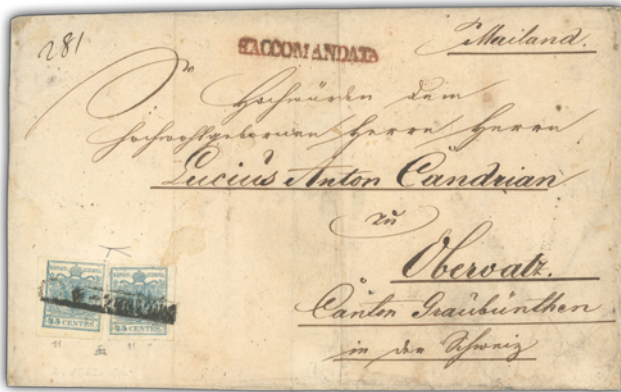 281
RACCOMANDATA
Mailand.
Sr
Hochwürden dem
Hochwohlgebornen Herrn Herrn
Lucius Anton Candrian
zu
Obervatz.
Canton Graubünthen
in der Schweiz
45 CENTES. 45 CENTES.
11 11